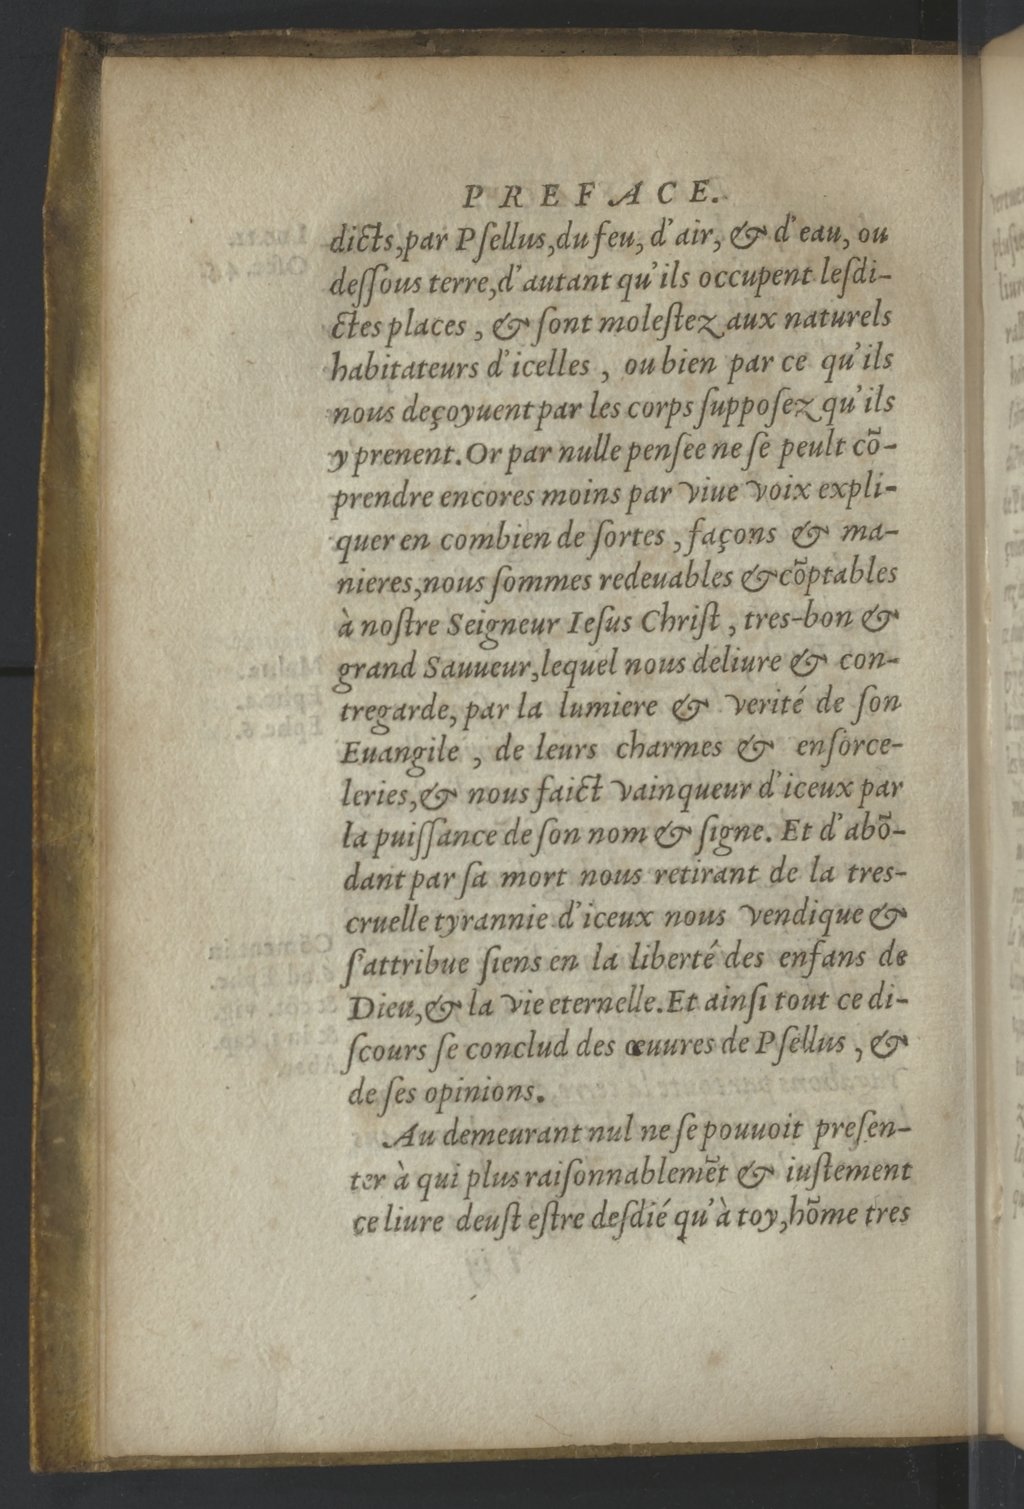 PREFACE.
dicts,par Pſellus,du feu, d'air, & d'eau, ou
deſſous terre,d'autant qu'ils occupent leſdi-
ctes places , & ſont moleſtez aux naturels
habitateurs d'icelles , ou bien par ce qu'ils
nous deçoyuent par les corps ſuppoſez qu'ils
y prenent. Or par nulle penſee ne ſe peult cõ-
prendre encores moins par viue voix expli-
quer en combien de ſortes , façons & ma-
nieres,nous ſommes redeuables & cõptables
à noſtre Seigneur Ieſus Chriſt , tres-bon &
grand Sauueur,lequel nous deliure & con-
tregarde, par la lumiere & verité de ſon
Euangile , de leurs charmes & enſorce-
leries,& nous faict vainqueur d'iceux par
la puiſſance de ſon nom & ſigne. Et d'abõ-
dant par ſa mort nous retirant de la tres-
cruelle tyrannie d'iceux nous vendique &
ſ'attribue ſiens en la liberté des enfans de
Dieu,& la vie eternelle. Et ainſi tout ce di-
ſcours ſe conclud des œuures de Pſellus , &
de ſes opinions.
Au demeurant nul ne ſe pouuoit preſen-
ter à qui plus raiſonnablemẽt & iuſtement
ce liure deuſt eſtre deſdié qu'à toy,hõme tres